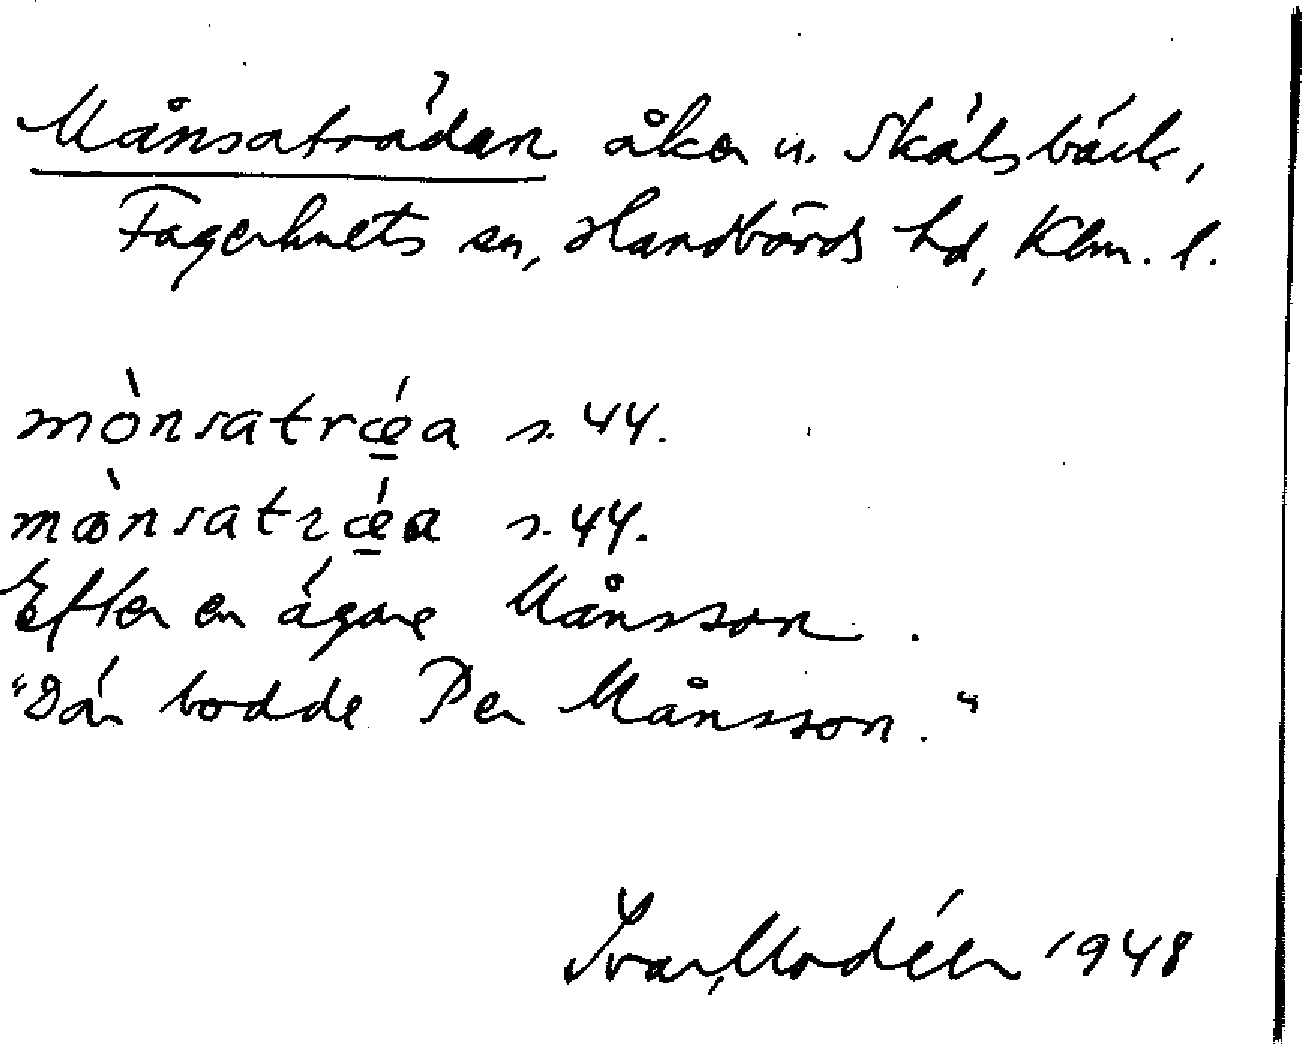 Månsaträdan åker u. Skälsbäck,
Fagerhults sn, Handbörds hd, Klm. l.
mònsatrǽa s. 44.
mònsatrǽa s. 44.
Efter en ägare Månsson.
"Där bodde Per Månsson."
Ivar Modéer 1948